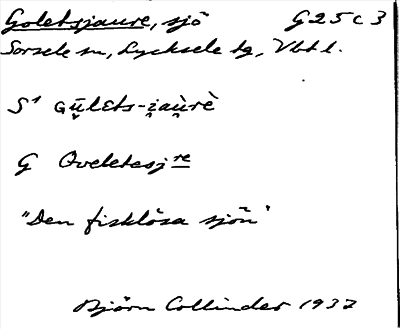 Goletsjaure, sjö G25c3
Sorsele sn, Lycksele tg, Vbtl.
S¹ Gu̬̅lɛts-i̯au̯rè
G Qveletesj re
"Den fisklösa sjön"
Björn Collinder 1937